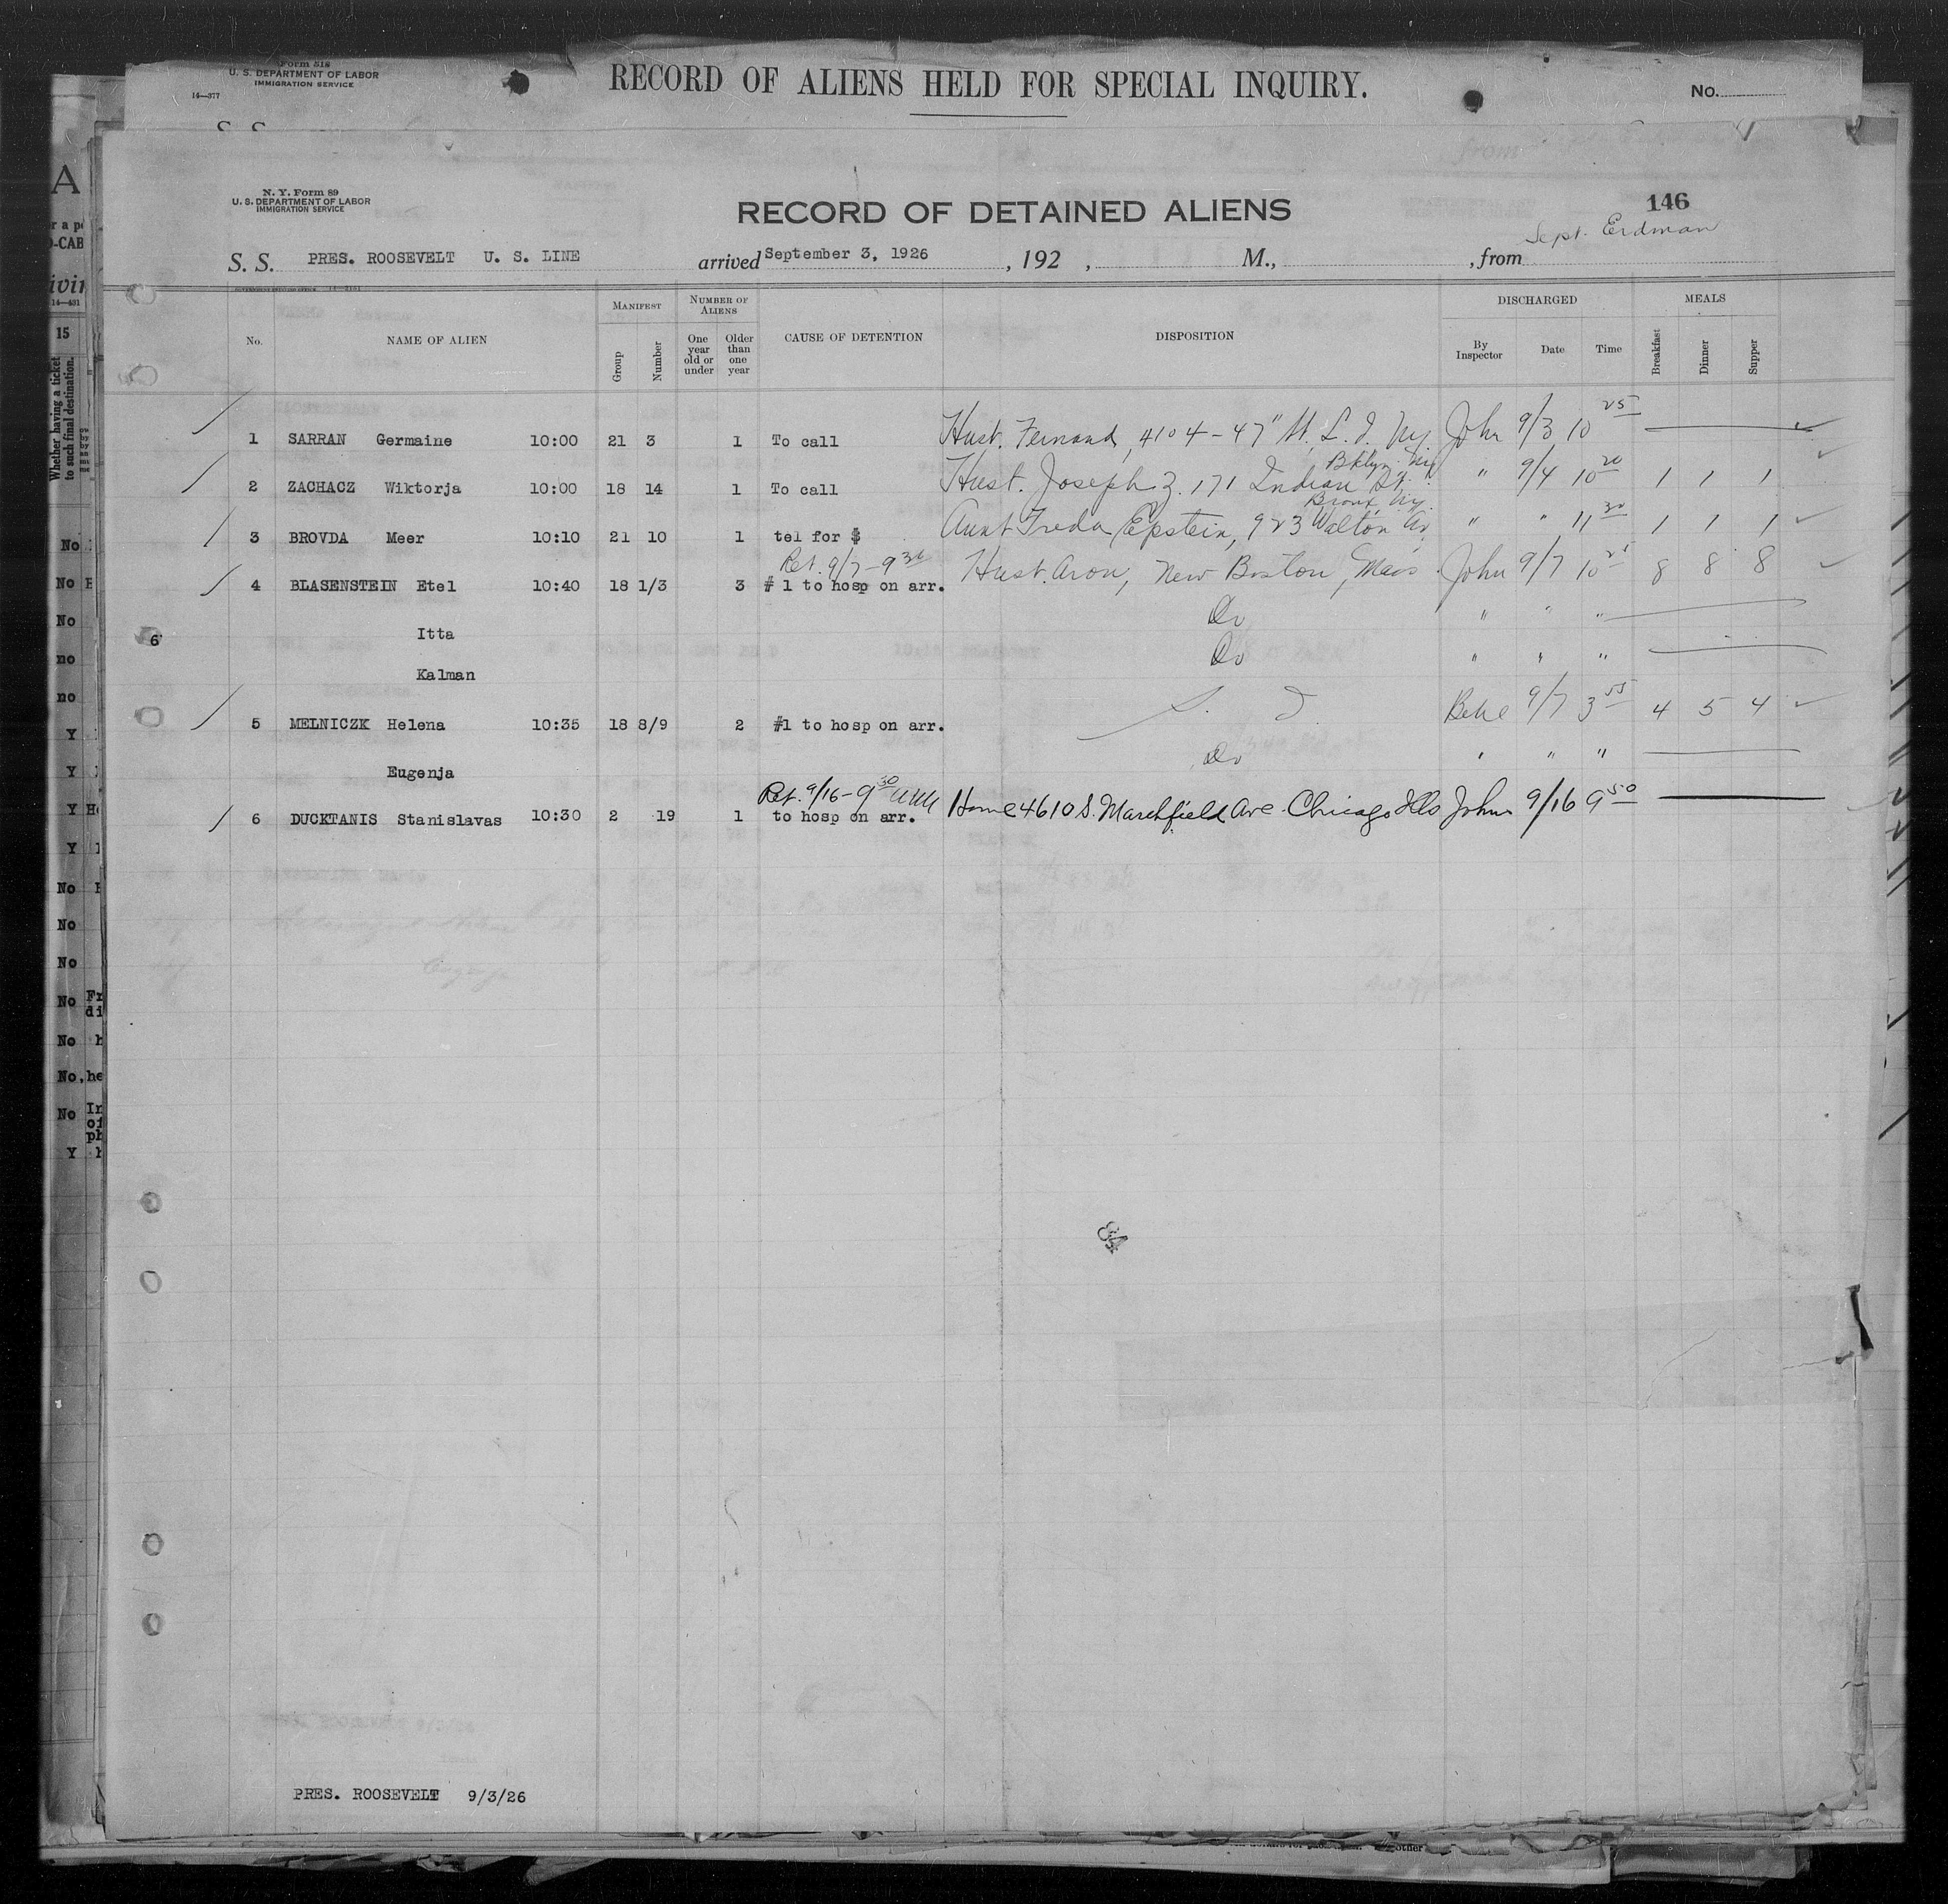 Form 518
U. S. DEPARTMENT OF LABOR
IMMIGRATION SERVICE
14—377
RECORD OF ALIENS HELD FOR SPECIAL INQUIRY.
No.
N. Y. Form 89
U. S. DEPARTMENT OF LABOR
IMMIGRATION SERVICE
RECORD OF DETAINED ALIENS
146
Sept. Erdman
S. S. PRES. ROOSEVELT U. S. LINE arrived September 3, 1926, 192 , M., , from
No. NAME OF ALIEN MANIFEST Group Number NUMBER OF ALIENS One year old or under Older than one year CAUSE OF DETENTION DISPOSITION DISCHARGED By Inspector Date Time MEALS Breakfast Dinner Supper
1 SARRAN Germaine 10:00 21 3 1 To call Hust. Fernand, 4104-47" St. L. I. Ny. John 9/3 10 25
Bklyn Ny
2 ZACHACZ Wiktorja 10:00 18 14 1 To call Hust. Joseph Z. 171 Indian St. " 9/4 10 20 1 1 1
Bronx, Ny.
3 BROVDA Meer 10:10 21 10 1 tel for $ Aunt Freda Epstein, 923 Walton Av. " " 11 30 1 1 1
Ret. 9/7-9 30
4 BLASENSTEIN Etel 10:40 18 1/3 3 # 1 to hosp on arr. Hust. Aron, New Boston, Mass. John 9/7 10 25 8 8 8
Itta Do " " "
6
Kalman Do " " "
5 MELNICZK Helena 10:35 18 8/9 2 #1 to hosp on arr. S. I. 9/7 3 55 4 5 4
Eugenja Do " " "
Ret. 9/16-9 30
6 DUCKTANIS Stanislavas 10:30 2 19 1 to hosp on arr. Home 4610 S. Marshfield Ave. Chicago Ills John 9/16 9 50
84
PRES. ROOSEVELT 9/3/26